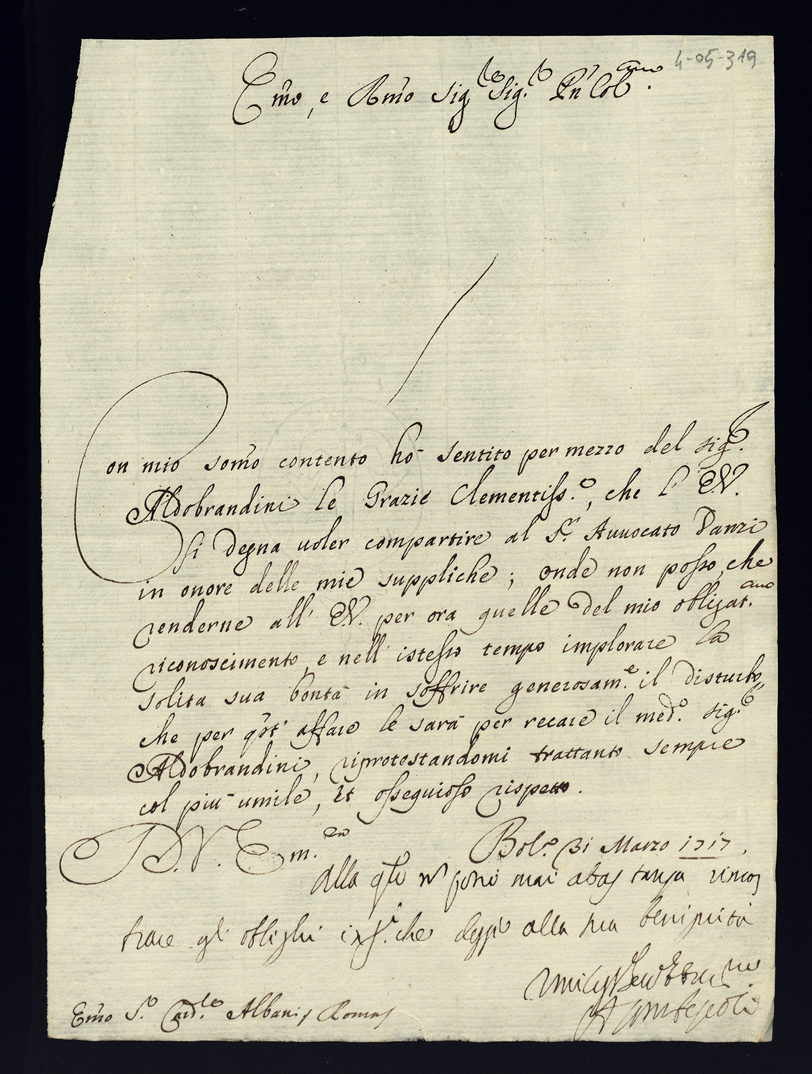 4-05-319
Em̃o, e Rm̃o Sig.re Sig.r Pn̄ Col.mo
Con mio som̃o contento hò sentito per mezzo del Sig.r
Aldobrandini le Grazie Clementiss.e, che l'E.V.
si degna uoler compartire al S.r Auuocato Danzi
in onore delle mie suppliche; onde non posso che
renderne all'E.V. per ora quelle del mio obligat.mo
riconoscimento, e nell'istesso tempo implorare la
solita sua bontà in soffrire generosam.e il disturbo,
che per q̃st'affare le sarà per recare il med.o Sig.r
Aldobrandini, riprotestandomi trattanto sempre
col più umile, et ossequioso rispetto.
D.V. Em.za
Bol.a 31 Marzo 1717.
alla q̃le
mai
gl'oblighi che alla sua benignità
Em̃o S.r Card.le Albani, Roma